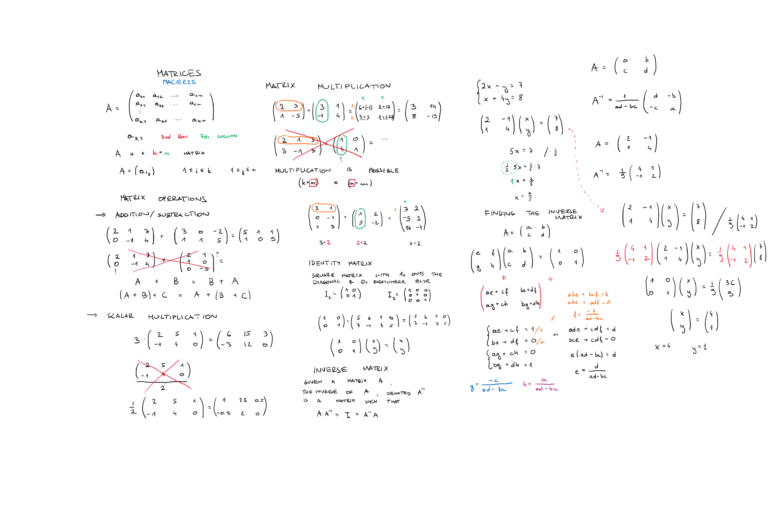 MATRICES
MACIERZE
A = ( a₁₁ a₁₂ ... a₁ₙ
a₂₁
aₖ₁ aₖ₂ ... aₖₙ )
a₂,₇ 2nd ROW 7th COLUMN
A is a k×n MATRIX
A = (aᵢ,ⱼ) 1 ≤ i ≤ k 1 ≤ j ≤ n
MATRIX OPERATIONS
→ ADDITION/SUBTRACTION
(2 1 3
0 -1 4) + (3 0 -2
1 1 5) = (5 1 1
1 0 9)
(2 1 3
0 -1 4) + (2 1
1 0
0 -5) =
A + B = B + A
(A + B) + C = A + (B + C)
→ SCALAR MULTIPLICATION
3 · (2 5 1
-1 4 0) = (6 15 3
-3 12 0)
(2 5 1
-1 4 0)
2
1/2 (2 5 1
-1 4 0) = (1 2.5 0.5
-0.5 2 0)
MATRIX MULTIPLICATION
(2 3
1 -5) · (3 1
-1 4) = (6+(-3) 2+12
3+5 1+(-20)) = (3 14
8 -19)
(2 1 3
3 -1 3) · (1 0
4 1) = ...
MULTIPLICATION IS POSSIBLE
(k×n) × (n×m)
(2 1
0 -1
3 4) · (1 2
5 -2) =
3×2 2×2 3×2
IDENTITY MATRIX
SQUARE MATRIX WITH 1s ONTO THE
DIAGONAL & 0s EVERYWHERE ELSE
I₂ = (1 0
0 1) I₃ = (1 0 0
0 1 0
0 0 1)
(1 0
0 1) · (5 6 1 0
7 -1 3 5) = (5 6 1 0
7 -1 3 5)
(1 0
0 1) (x
y) = (x
y)
INVERSE MATRIX
GIVEN A MATRIX A,
THE INVERSE OF A, DENOTED A⁻¹
IS A MATRIX SUCH THAT
A A⁻¹ = I = A⁻¹ A
{2x - y = 7
x + 4y = 8
(2 -1
1 4) (x
y) = (7
8)
5x = 7 / · 1/5
1/5 · 5x = 1/5 · 7
1x = 7/5
x = 7/5
FINDING THE INVERSE
MATRIX
A = (a b
c d)
(e f
g h) (a b
c d) = (1 0
0 1)
(ae + cf be + df
ag + ch bg + dh)
{ae + cf = 1
be + df = 0
{ag + ch = 0
bg + dh = 1
abe + bcf = b
abe + adf = 0
f = -b/(ad-bc)
ade + cdf = d
bce + cdf = 0
e(ad - bc) = d
e = d/(ad-bc)
g = -c/(ad-bc) h = a/(ad-bc)
A = (a b
c d)
A⁻¹ = 1/(ad-bc) (d -b
-c a)
A = (2 -1
1 4)
A⁻¹ = 1/9 (4 1
-1 2)
(2 -1
1 4) (x
y) = (7
8) / 1/9 (4 1
-1 2)
1/9 (4 1
-1 2) (2 -1
1 4) (x
y) = 1/9 (4 1
-1 2) (7
8)
(1 0
0 1) (x
y) = 1/9 (36
9)
(x
y) = (4
1)
x = 4 y = 1